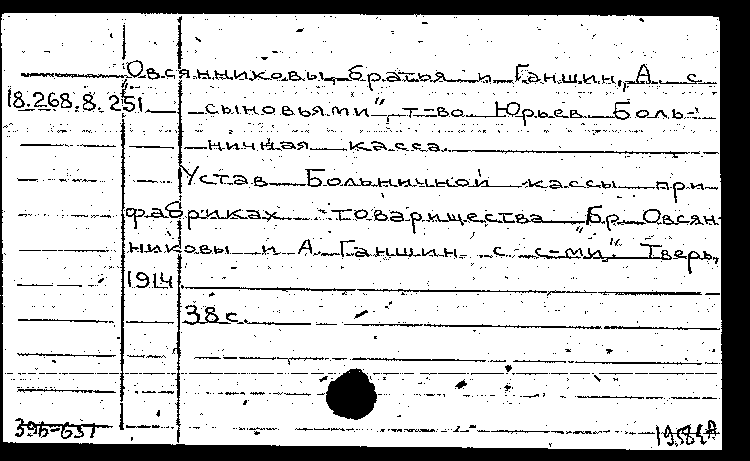 Овсянниковы, братья и Ганшин, А. с
18.268.8.251 сыновьями", т-во. Юрьев. Боль-
ничная касса.
Устав Больничной кассы при
фабриках товарищества "Бр. Овсян-
никовы и А. Ганшин с с-ми". Тверь,
1914.
38 с.
396-631